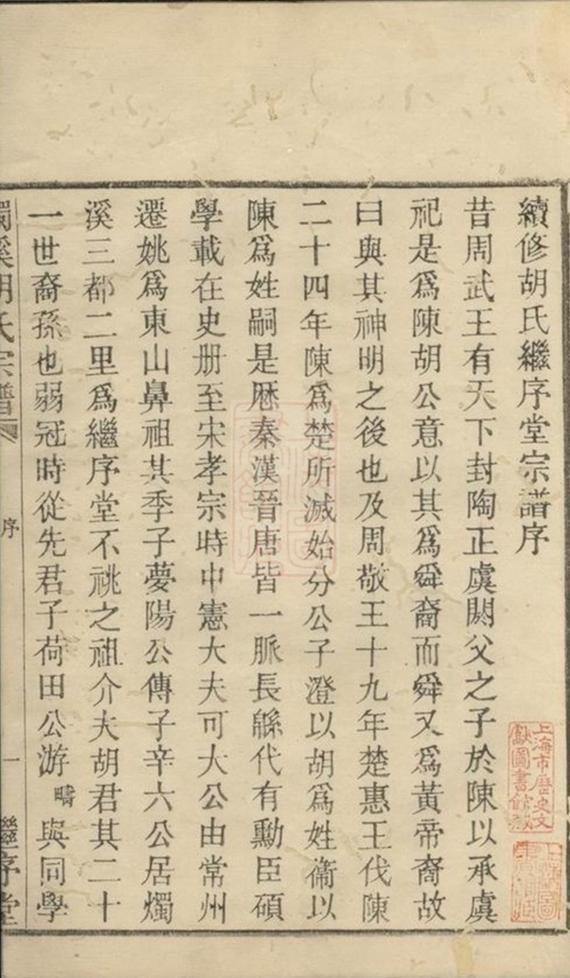 續修胡氏繼序堂宗譜序
昔周武王有天下封陶正虞閼父之子於陳以承虞
祀是爲陳胡公意以其爲舜裔而舜又爲黃帝裔故
曰與其神明之後也及周敬王十九年楚惠王伐陳
二十四年陳爲楚所滅始分公子澄以胡爲姓衞以
陳爲姓嗣是厯秦漢晉唐皆一脈長緜代有勳臣碩
學載在史册至宋孝宗時中憲大夫可大公由常州
遷姚爲東山鼻祖其季子夢陽公傳子辛六公居燭
溪三都二里爲繼序堂不祧之祖介夫胡君其二十
一世裔孫也弱冠時從先君子荷田公游疇與同學
燭溪胡氏宗譜
序
一
繼序堂
上海市歷史文
獻圖書館藏